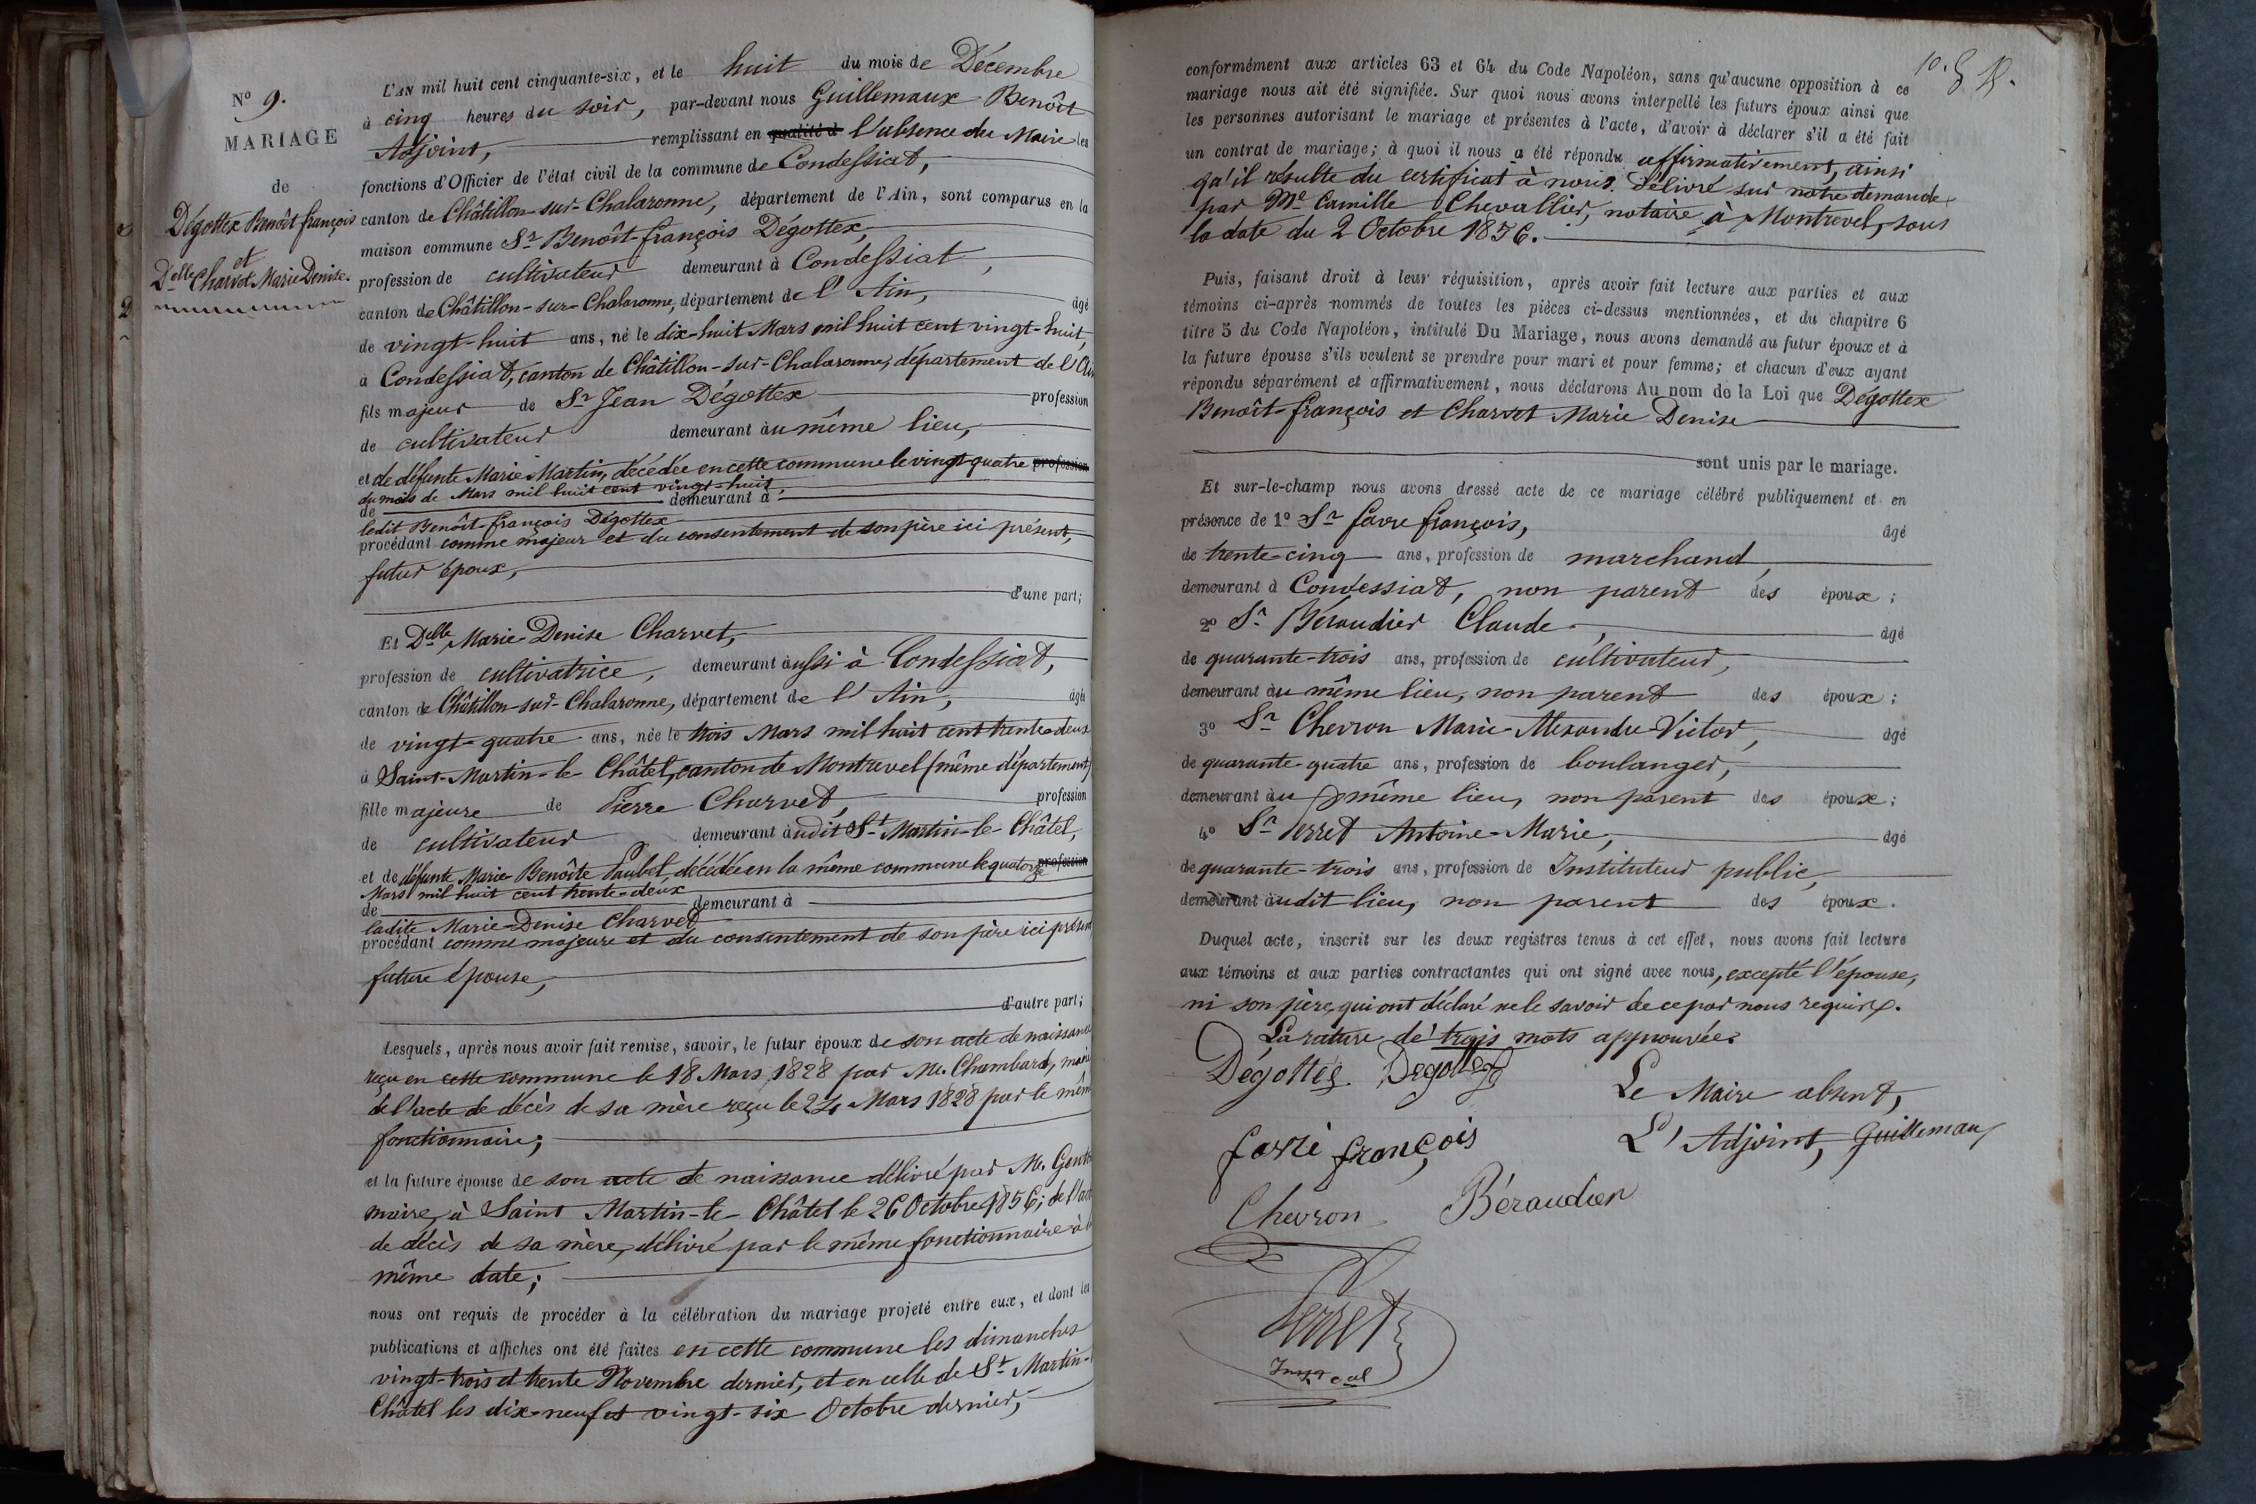 N° 9.
MARIAGE
de
Dégottex Benoît françois
et
Delle Charvet Marie Denise.
L'AN mil huit cent cinquante-six, et le huit du mois de Décembre
à cinq heures du soir, par-devant nous Guillemaux Benoît
Adjoint, remplissant en qualité d l'absence du Maire les
fonctions d'Officier de l'état civil de la commune de Condessiat,
canton de Châtillon-sur-Chalaronne, département de l'Ain, sont comparus en la
maison commune Sr Benoît-françois Dégottex,
profession de cultivateur demeurant à Condessiat,
canton de Châtillon-sur-Chalaronne, département de l'Ain, âgé
de vingt-huit ans, né le dix-huit Mars mil huit cent vingt-huit,
à Condessiat, canton de Châtillon-sur-Chalaronne, département de l'Ain
fils majeur de Sr Jean Dégottex profession
de cultivateur demeurant au même lieu,
et de défunte Marie Martin, décédée en cette commune le vingt quatre profession
du mois de Mars mil huit cent vingt-huit,
de demeurant à
ledit Benoît-françois Dégottex
procédant comme majeur et du consentement de son père ici présent,
futur époux,
d'une part;
Et Delle Marie-Denise Charvet,
profession de cultivatrice, demeurant aussi à Condessiat,
canton de Châtillon-sur-Chalaronne, département de l'Ain, âgée
de vingt-quatre ans, née le trois Mars mil huit cent trente-deux
à Saint-Martin-le-Châtel, canton de Montrevel (même département)
fille majeure de Pierre Charvet, profession
de cultivateur demeurant audit St Martin-le-Châtel,
et de défunte Marie-Benoîte Paubel, décédée en la même commune le quatorze profession
Mars mil huit cent trente-deux
de demeurant à
ladite Marie-Denise Charvet
procédant comme majeure et du consentement de son père ici présent
future épouse,
d'autre part;
Lesquels, après nous avoir fait remise, savoir, le futur époux de son acte de naissance
reçu en cette commune le 18 Mars 1828 par M. Chambard, maire
de l'acte de décès de sa mère reçu le 24 Mars 1828 par le même
fonctionnaire;
et la future épouse de son acte de naissance délivré par M.
maire, à Saint Martin-le-Châtel le 26 Octobre 1856; de l'acte
de décès de sa mère, délivré par le même fonctionnaire à la
même date;
nous ont requis de procéder à la célébration du mariage projeté entre eux, et dont les
publications et affiches ont été faites en cette commune les dimanches
vingt-trois et trente Novembre dernier, et en celle de St Martin-
Châtel les dix-neuf et vingt-six Octobre dernier,
10.
conformément aux articles 63 et 64 du Code Napoléon, sans qu'aucune opposition à ce
mariage nous ait été signifiée. Sur quoi nous avons interpellé les futurs époux ainsi que
les personnes autorisant le mariage et présentes à l'acte, d'avoir à déclarer s'il a été fait
un contrat de mariage; à quoi il nous a été répondu affirmativement, ainsi
qu'il résulte du certificat à nous délivré sur notre demande
par Me Camille Chevallier, notaire à Montrevel, sous
la date du 2 Octobre 1856.
Puis, faisant droit à leur réquisition, après avoir fait lecture aux parties et aux
témoins ci-après nommés de toutes les pièces ci-dessus mentionnées, et du chapitre 6
titre 5 du Code Napoléon, intitulé Du Mariage, nous avons demandé au futur époux et à
la future épouse s'ils veulent se prendre pour mari et pour femme; et chacun d'eux ayant
répondu séparément et affirmativement, nous déclarons Au nom de la Loi que Dégottex
Benoît-françois et Charvet Marie Denise
sont unis par le mariage.
Et sur-le-champ nous avons dressé acte de ce mariage célébré publiquement et en
présence de 1° Sr favre françois, âgé
de trente-cinq ans, profession de marchand,
demeurant à Condessiat, non parent des époux;
2° Sr Béraudier Claude, âgé
de quarante-trois ans, profession de cultivateur,
demeurant au même lieu, non parent des époux;
3° Sr Chevron Marie-Alexandre-Victor, âgé
de quarante-quatre ans, profession de boulanger,
demeurant au même lieu, non parent des époux;
4° Sr Perret Antoine-Marie, âgé
de quarante-trois ans, profession de Instituteur public,
demeurant audit lieu, non parent des époux.
Duquel acte, inscrit sur les deux registres tenus à cet effet, nous avons fait lecture
aux témoins et aux parties contractantes qui ont signé avec nous, excepté l'épouse,
ni son père, qui ont déclaré ne le savoir de ce par nous requis.
La rature de trois mots approuvée.
Dégottex Degottex
Le Maire absent,
favre françois L'Adjoint, Guillemaux
Chevron Béraudier
Perret